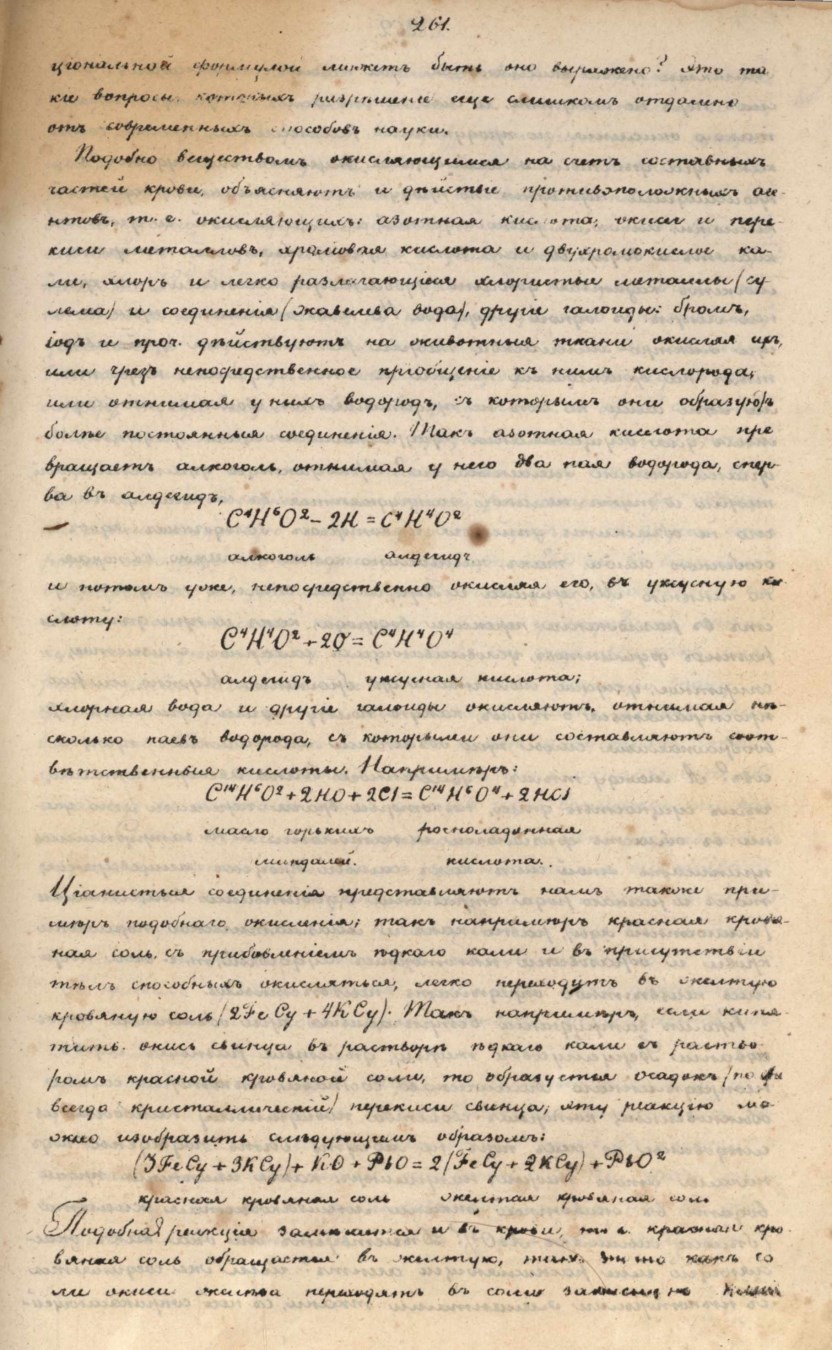 261.
ціональной формулой можетъ быть оно выражено? Это та
кіе вопросы, которыхъ разрѣшеніе еще слишкомъ отдалено
отъ современныхъ способовъ науки.
Подобно веществомъ окисляющимся на счетъ составныхъ
частей крови, объясняютъ и дѣйствіе противоположныхъ аге-
нтовъ, т. е. окисляющихъ: азотная кислота, окиси и пере-
киси металловъ, хромовая кислота и двухромокислое ка-
ли, хлоръ и легко разлагающіеся хлористые металлы (су
лема) и соединенія (жавелева вода), другіе галоиды: бромъ,
іодъ и проч. дѣйствуютъ на животныя ткани окисляя ихъ,
или чрезъ непосредственное пріобщеніе къ нимъ кислорода,
или отнимая у нихъ водородъ, съ которымъ они образуютъ
болѣе постоянныя соединенія. Такъ азотная кислота пре
вращаетъ алкоголь, отнимая у него два пая водорода, спер-
ва въ алдегидъ,
C⁴H⁶O² - 2H = C⁴H⁴O²
алкоголь алдегидъ
и потомъ уже, непосредственно окисляя его, въ уксусную ки
слоту:
C⁴H⁴O² + 2O = C⁴H⁴O⁴
алдегидъ уксусная кислота;
хлорная вода и другіе галоиды окисляютъ, отнимая нѣ-
сколько паевъ водорода, съ которыми они составляютъ соот-
вѣтственныя кислоты. Напримѣръ:
C¹⁴H⁶O² + 2HO + 2Cl = C¹⁴H⁶O⁴ + 2HCl
масло горькихъ росноладонная
миндалей. кислота.
Ціанистыя соединенія представляютъ намъ также при-
мѣръ подобнаго окисленія; такъ напримѣръ красная кровя-
ная соль, съ прибовленіемъ ѣдкаго кали и въ присутствіи
тѣлъ способныхъ окисляться, легко переходутъ въ желтую
кровяную соль (2FeCy + 4KCy). Такъ напримѣръ, если кипя
тить окись свинца въ растворѣ ѣдкаго кали съ раство-
ромъ красной кровяной соли, то образуется осадокъ (не
всегда кристаллическій) перекиси свинца; эту реакцію мо-
жно изобразить слѣдующимъ образомъ:
(3FeCy + 3KCy) + KO + PbO = 2(FeCy + 2KCy) + PbO²
красная кровяная соль желтая кровяная соль
Подобная реакція замѣчается и въ крови, т. е. красная кро
вяная соль обращается въ желтую, какъ со
ли окиси желѣза переходятъ въ соли